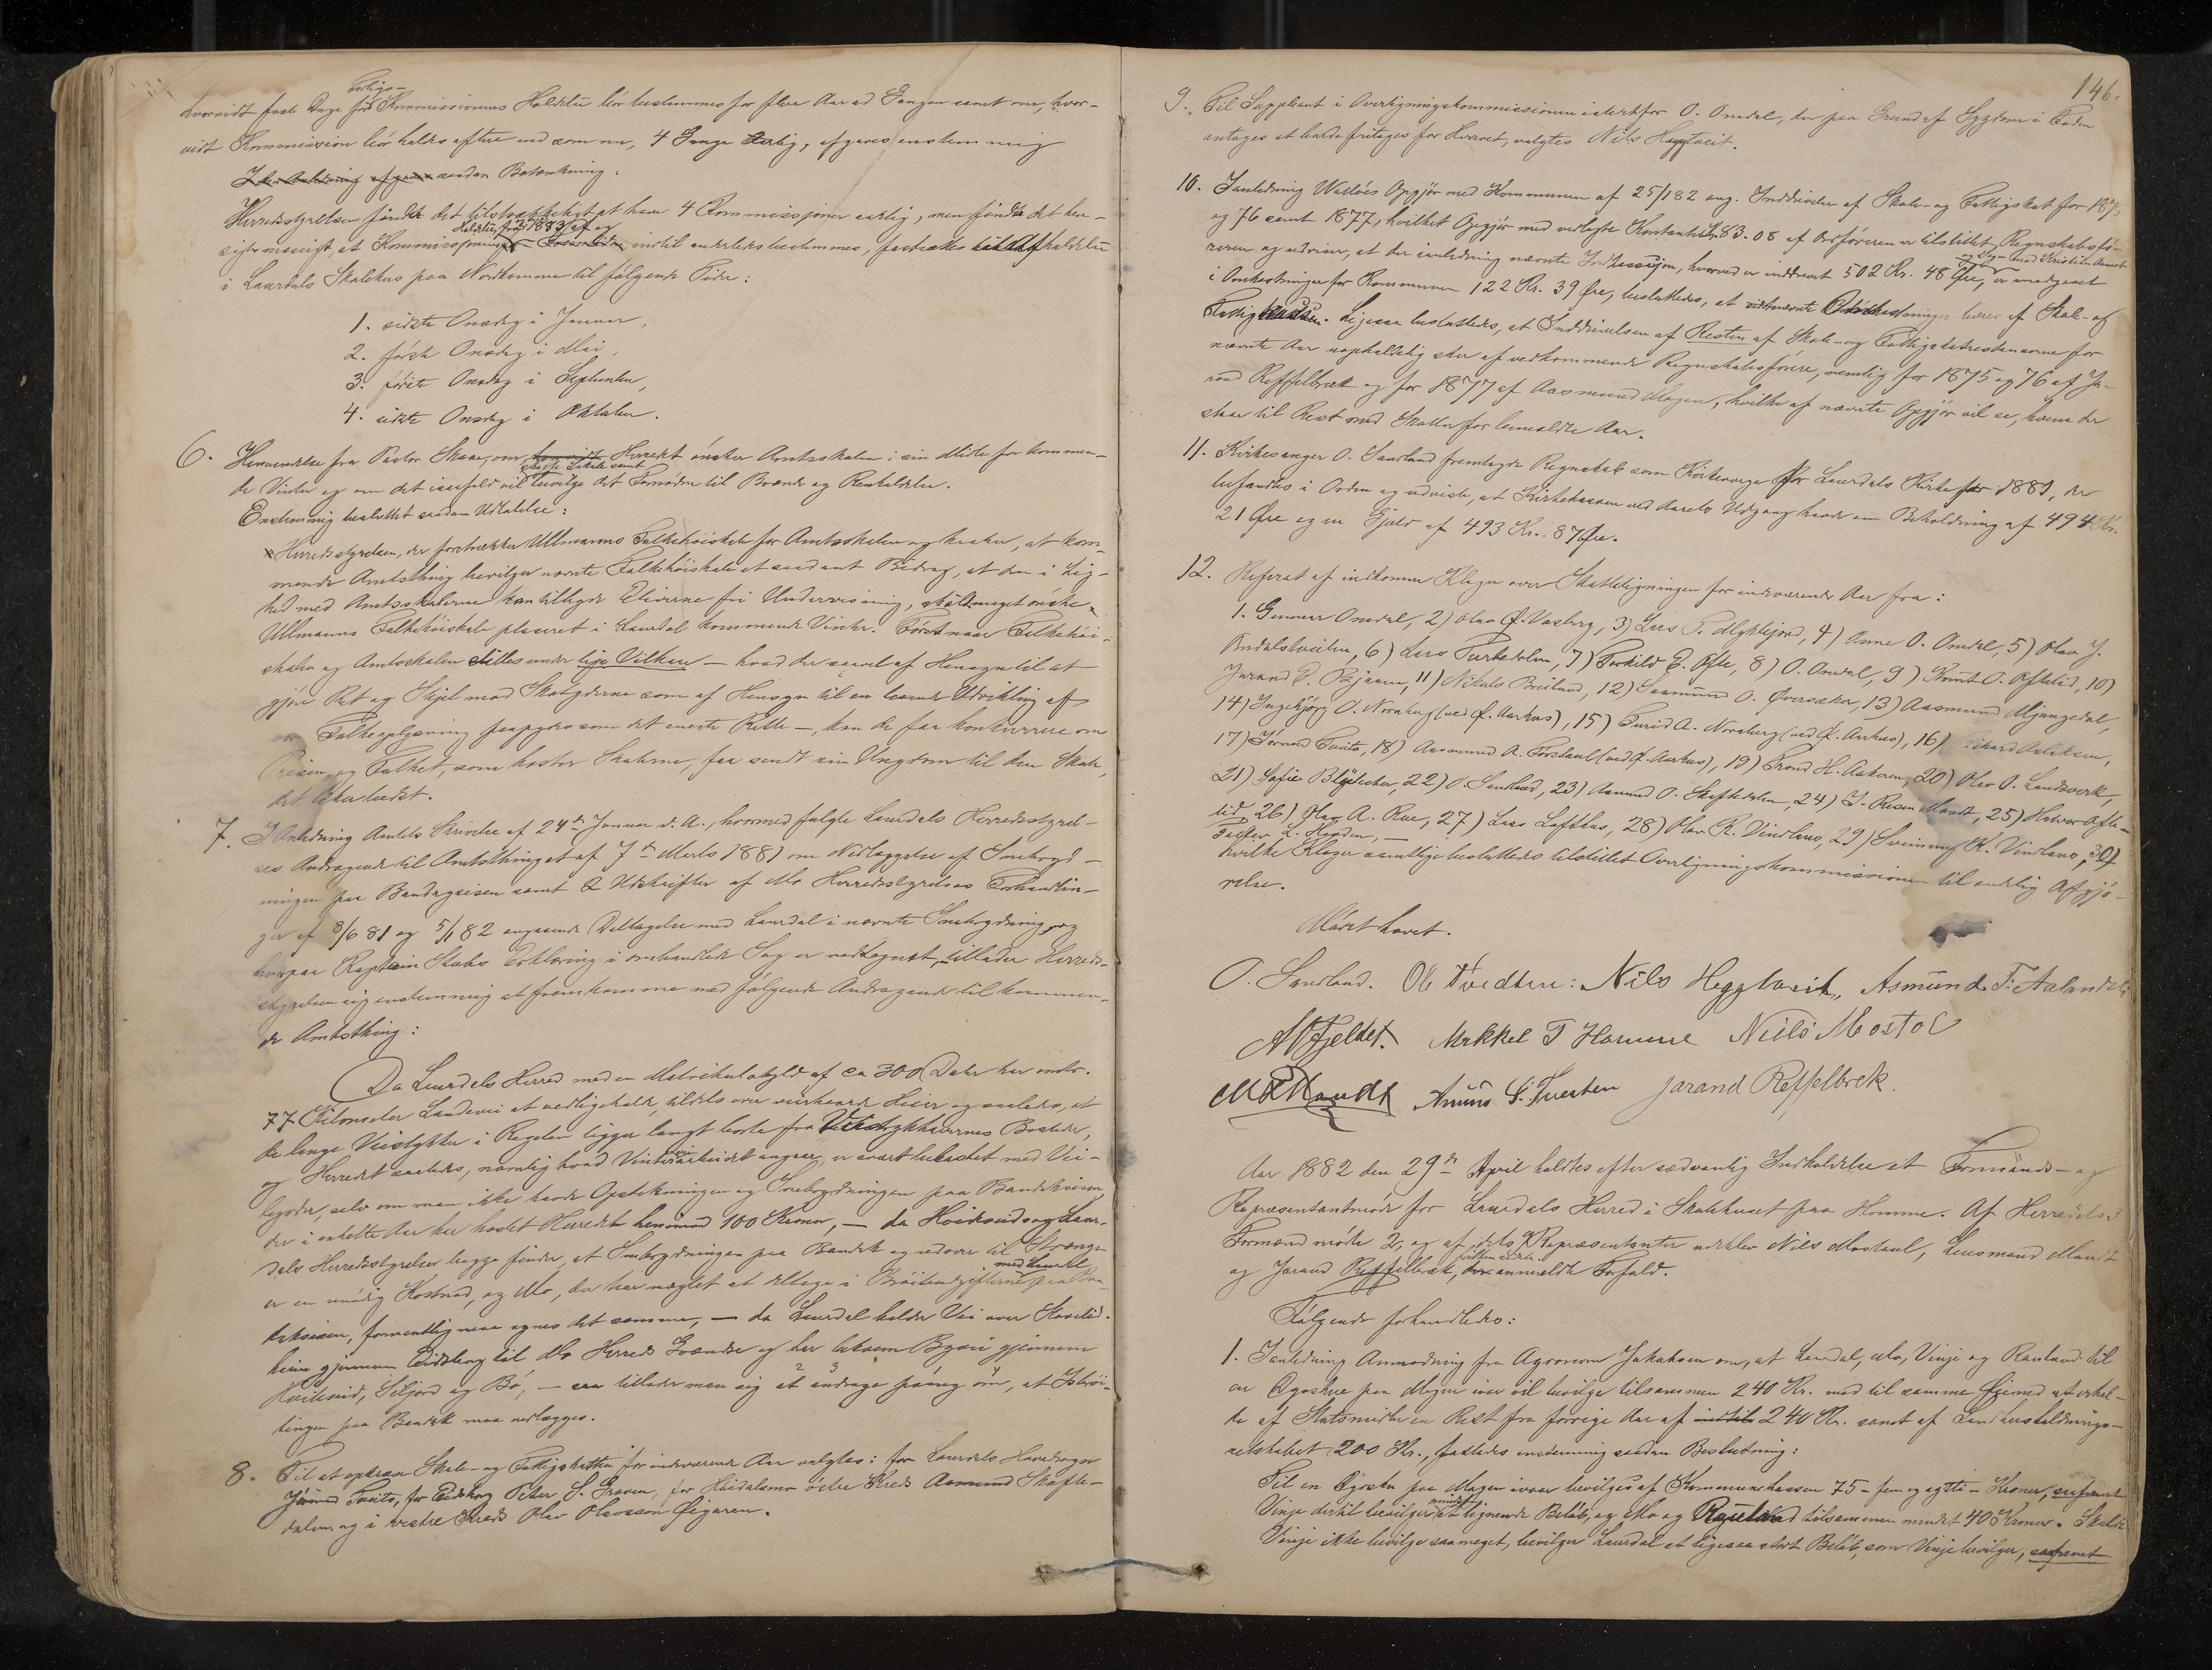 Forligs-
hvorvidt faste Dage for Kommissionens Holdelse bör bestemmes for flere Aar ad Gangen samt om, hvor-
vidt Kommission bör holdes oftere end som nu, 4 Gange aarlig, afgaves enstemmig
saadan Betænkning:
Herredsstyrelsen finder det tilstrækkeligt at have 4 Kommissioner aarlig, men finder det hen-
Holdelse fra 1883 af og
sigtsmæssigt, at Kommissionens indtil anderledes bestemmes, fastsættes afholdelse
i Laurdals Skolehus paa Nordhomme til fölgende Tider:
1. sidste Onsdag i Januar,
2. förste Onsdag i Mai,
3. förste Onsdag i September,
4. sidste Onsdag i Oktober.
6. Henvendelse fra Pastor Skaar, om hvorvidt Herredet önsker Amtsskolen i sin Midte for kommen-
skaffe Lokale samt
de Vinter og om det isaafald vil bevilge det Fornödne til Brænde og Renholdelse.
Enstemmig besluttet saadan Udtalelse:
Herredsstyrelsen, der foretrækker Ullmanns Folkehöiskole for Amtsskolen og önsker, at kom-
mende Amtsthing bevilger nævnte Folkehöiskole et saadant Bidrag, at den i Lig-
hed med Amtsskolerne kan tilbyde Eleverne fri Undervisning, skulde meget önske
Ullmanns Folkehöiskole placeret i Laurdal kommende Vinter. Först naar Folkehöi-
skolen og Amtsskolen stilles under lige Vilkaar — hvad der saavel af Hensyn til at
gjöre Ret og Skjel mod Skatyderne som af Hensyn til en Udvikling af
Folkeoplysning paapydes som det eneste Rette —, kan de faa konkurrere om
Prisen, og Folket, som koster Skolerne, faa sendt sin Ungdom til den Skole,
det liker bedst.
7. I Anledning Amtets Skrivelse af 24de Januar d. A., hvormed fulgte Laurdals Herredsstyrel-
ses Andragende til Amtsthinget af 7de Marts 1881 om Nedlæggelse af Snebryd-
ningen paa Bandagsisen samt 2 Udskrifter af Mo Herredsstyrelses Forhandlin-
ger af 8/6 81 og 5/1 82 angaaende Deltagelse med Laurdal i nævnte Snebrydning, og
hvorpaa Kaptein Stabs Erklæring i omhandlede Sag er vedtegnet, tillader Herreds-
styrelsen sig enstemmig at fremkomme med fölgende Andragende til kommen-
de Amtsthing:
Da Laurdals Herred med en Matrikulskyld af ca 300 Daler har omtr.
77 Kilometer Landevei at vedligeholde, tildels over veirhaarde Heier og saaledes, at
de lange Veistykker i Regelen ligger langt borte fra Veistykkeiernes Bosteder,
og Herredet saaledes, navnlig hvad Vinterarbeidet angaar, er svært belastet med Vei-
byrder, selv om man ikke havde Opstikningen og Snebrydningen paa Bandaksisen,
der i enkelte Aar har kostet Herredet henimod 100 Kroner, — da Hvidesø og Laur-
dals Herredsstyrelser begge finder, at Snebrydningen paa Bandak og udover til Strængen
med Laurdal
er en unödig Kostnad, og Mo, der har nægtet at deltage i Bröiteudgifterne paa Ban-
daksisen, formentlig maa synes det samme, — da Laurdal holder Vei over
heien gjennem Eidsborg til Mo Herreds Grændse og har Byvei gjennem
Hvidesø, Seljord og Bö, — saa tillader man sig at andrage om, at Isbröi-
tingen paa Bandak maa nedlægges.
8. Til at opkræve Skole- og Fattigskatten for indeværende Aar valgtes: for Laurdals Hovedsogn
Tveito, for Eidsborg Peter S. Graven, for Höidalsmo östre Kreds Aamund Skafte-
dalen, og i vestre Kreds Olav Olavsson Öigaren.
146.
9. Til Suppleant i Overligningskommissionen istedetfor O. Omdal, der paa Grund af Sygdom i Foden
antages at burde fritages for Hvervet, valgtes Nils Heggtveit.
10. I Anledning Opgjör med Kommunen af 25/1 82 ang. Inddrivelse af Skole- og Fattigskat for 1875
og 76 samt 1877, hvilket Opgjör med vedlagte Kontant 83.08 af Ordföreren er tilstillet Regnskabsfö-
reren og udviser, at der i anledning nævnte , hvorved er inddrevet 502 Kr. 48 Öre, er medgaaet
i Omkostninger for Kommunen 122 Kr. 39 Öre, besluttedes, at sidstnævnte Omkostninger bæres af Skole- og
Fattigkassen. Ligesaa besluttedes, at Inddrivelsen af Resten af Skole- og Fattigskatrestancerne for
nævnte Aar uopholdelig sker af vedkommende Regnskabsförere, nemlig for 1875 og 76 af Ja-
rand Reffelbræk og for 1877 af Aasmund Mogen, hvilke af nævnte Opgjör vil se, hvem der
staar til Rest med Skatter for bemeldte Aar.
11. Kirkesanger O. Sandland fremlagde Regnskab som Kirkeværge for Laurdals Kirke for 1881, der
befandtes i Orden og udviste, at Kirkekassen ved Aarets Udgang havde en Beholdning af 494 Kr.
21 Öre og en Gjæld af 493 Kr. 87 Öre.
12. Referat af indkomne Klager over Skatteligningen for indeværende Aar fra:
1. Gunnar Omdal, 2) Olav Ø. Vasberg, 3) Lars T. Myklejord, 4) Anne O. Omdal, 5) Olav J.
Andalstveiten, 6) Lars Turtedalen, 7) Torkild E. Ofte, 8) O. Omdal, 9) Knut O. Oftelid, 10)
Jarand E. Bjaaen, 11) Nikuls Breiland, 12) Saamund O. , 13) Aasmund Mjungedal,
14) Ingebjörg O. Noraberg (ved Ø. Aarhus), 15) Turid A. Noraberg (ved Ø. Aarhus), 16) Aslaksen,
17) Tveito, 18) Aasmund A. Forstaul (ved Ø. Aarhus), 19) Trond H. Aakeren, 20) Olav O. Landsverk,
21) Sofie , 22) O. Sandland, 23) Aanund O. Skaftedalen, 24) J. Mandt, 25) Halvor Ofte-
lid, 26) Olav A. Rue, 27) Lars Lofthus, 28) Olav R. Vindlaus, 29) Sveinung R. Vindlaus, 30)
L. , —
hvilke Klager samtlige besluttedes tilstillet Overligningskommissionen til endelig Afgjö-
relse.
Mödet hævet.
O. Sandland. Ol Tvedten: Nils Heggtveit, Asmund T. Aalandslid
A Fjeldet. Mikkel T Homme Nils Mostöl
M Mandt Anund G. Tvesten Jarand Reffelbrek.
Aar 1882 den 29de April holdtes efter sædvanlig Indkaldelse et Formands- og
Repræsentantmöde for Laurdals Herred i Skolehuset paa Homme. Af Herredets
Formænd mödte 2, og af dets Repræsentanter udeblev Nils Mostaul, Lensmand Mandt
og Jarand Reffelbræk, anmeldte Forfald.
Fölgende forhandledes:
1. I Anledning Anmodning fra Agronom Jakobsen om, at Laurdal, Mo, Vinje og Rauland til
en paa Mogen vil bevilge tilsammen 240 Kr. mod til samme Öiemed at erhol-
de af Statsmidler en Rest fra forrige Aar af indtil 240 Kr. samt af Landhusholdnings-
selskabet 200 Kr., fattedes enstemmig saadan Beslutning:
Til en paa Mogen bevilges af Kommunekassen 75 – fem og sytti – Kroner, saafremt
mindst
Vinje dertil bevilger et lignende Belöb, og Mo og Rauland tilsammen mindst 40 Kroner. Skulde
Vinje ikke bevilge saa meget, bevilger Laurdal et ligesaa stort Belöb, som Vinje bevilger, saafremt